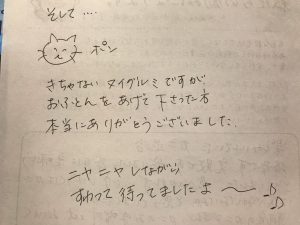 そして....
ポン
きちゃない ヌイグルミ ですが
おふとんを あげて 下さった方
本当に ありがとうございました.
ニヤニヤ しながら
すわって 待ってましたよ〜♪♪